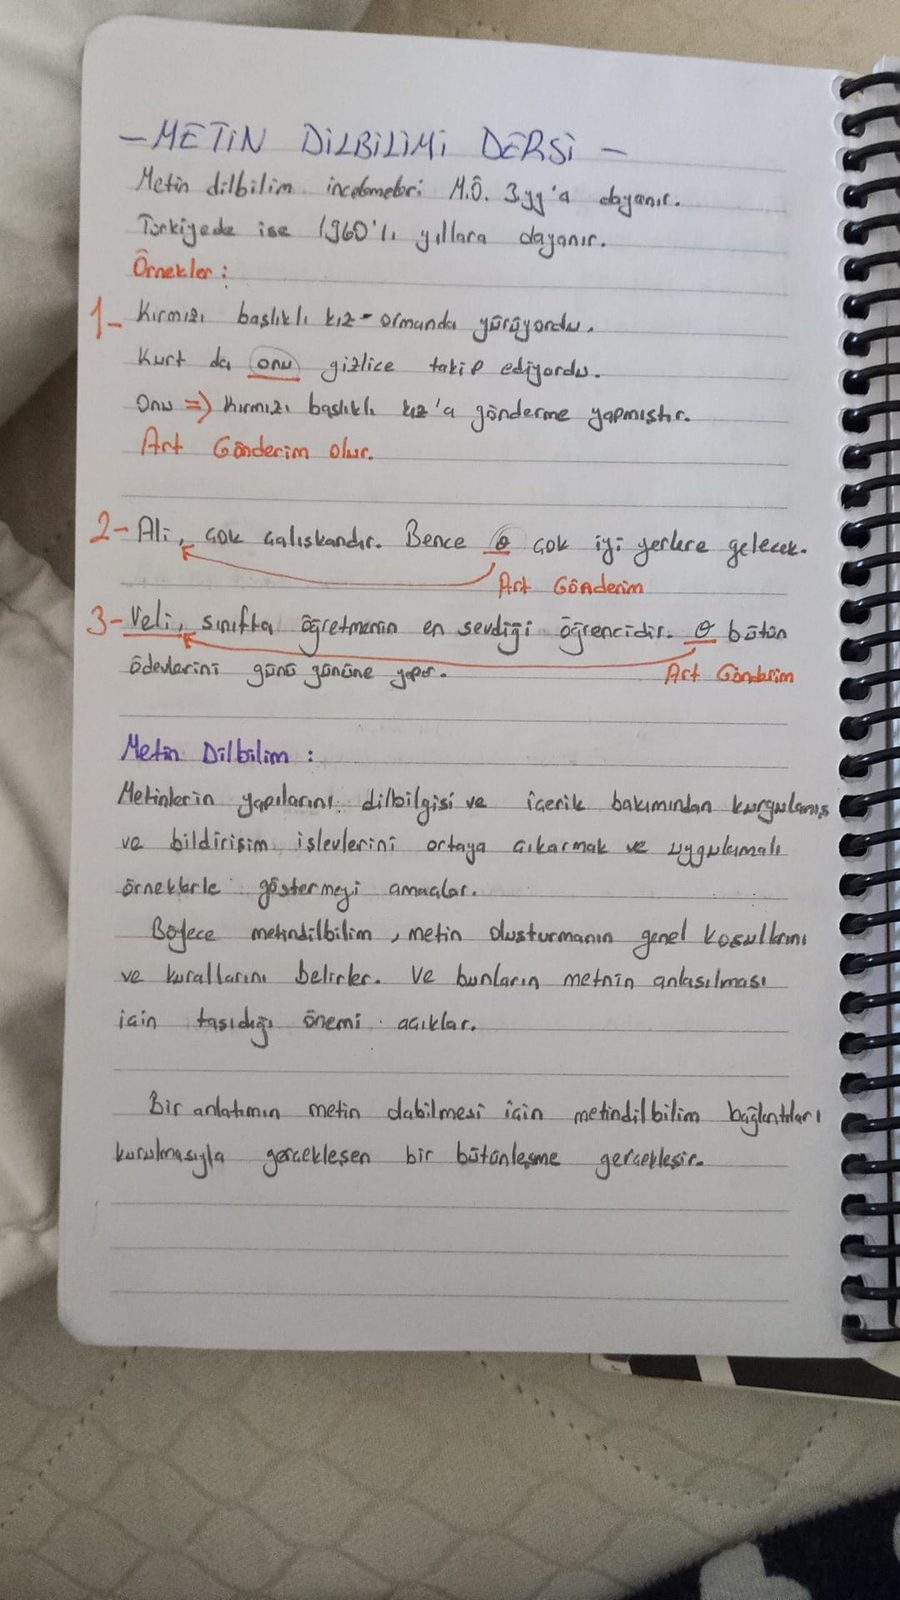 - METİN DİLBİLİMİ DERSİ -
Metin dilbilim incelemeleri M.Ö. 3.yy'a dayanır.
Türkiyede ise 1960'lı yıllara dayanır.
Örnekler :
1- Kırmızı başlıklı kız - ormanda yürüyordu.
Kurt da onu gizlice takip ediyordu.
Onu => Kırmızı başlıklı kız'a gönderme yapmıştır.
Art Gönderim olur.
2- Ali, çok çalışkandır. Bence θ çok iyi yerlere gelecek.
Art Gönderim
3- Veli, sınıfta öğretmenin en sevdiği öğrencidir. θ bütün
ödevlerini günü gününe yapar.
Art Gönderim
Metin Dilbilim :
Metinlerin yapılarını dilbilgisi ve içerik bakımından kurgulanış
ve bildirişim işlevlerini ortaya çıkarmak ve uygulamalı
örneklerle göstermeyi amaçlar.
Böylece metindilbilim, metin oluşturmanın genel koşullarını
ve kurallarını belirler. Ve bunların metnin anlaşılması
için taşıdığı önemi açıklar.
Bir anlatımın metin olabilmesi için metindilbilim bağlantıları
kurulmasıyla gerçekleşen bir bütünleşme gerçekleşir.